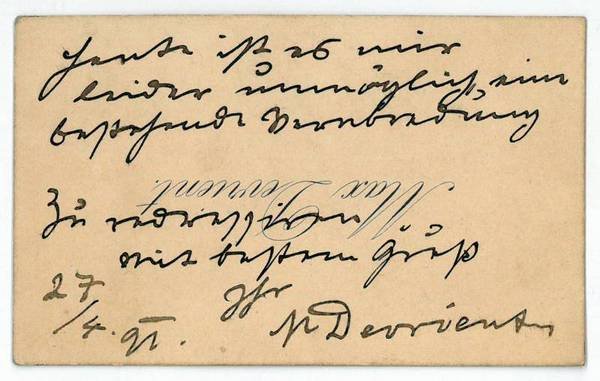 Heute ist es mir
leider unmöglich, eine
bestehende Verabredung
Max Devrient.
zu redressiren
mit bestem Gruß
27/4. 91.
Ihr
M Devrient